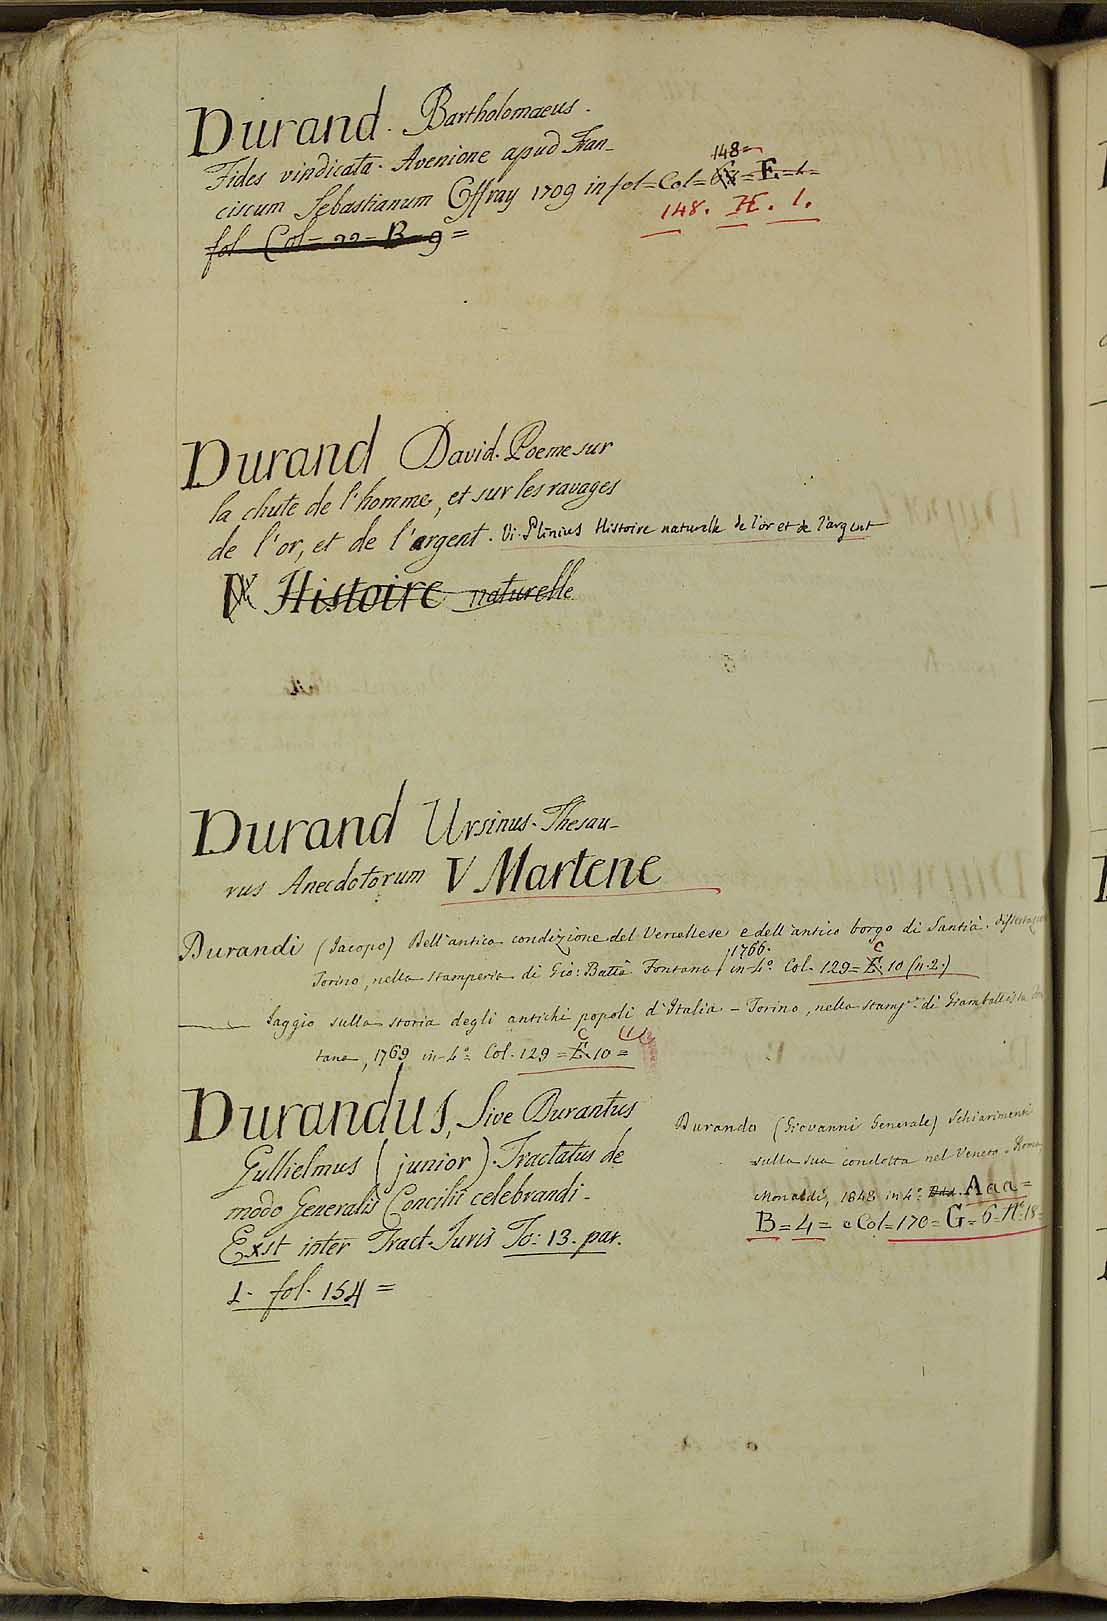 Durand. Bartholomaeus.
Fides vindicata. Avenione apud Fran-
ciscum Sebastianum Offray 1709 in fol = Col = 148 = E. = 1 =
148. H. 1.
fol Col = 22 = B = 9 =
Durand David. Poeme sur
la chute de l'homme, et sur les ravages
de l'or, et de l'argent. Vi. Plinius Histoire naturelle de l'or et de l'argent
Histoire naturelle
Durand Ursinus. Thesau-
rus Anecdotorum V Martene
Durandi (Jacopo) Dell'antica condizione del Vercellese e dell'antico borgo di Santià. Dissertazione
Torino, nella stamperia di Gio: Batta Fontana, 1766. in-4º Col. 129 = C. 10 (n. 2.)
Saggio sulla storia degli antichi popoli d'Italia - Torino, nella stamp.ª di Giambattista Fon
tana, 1769 in-4º Col. 129 = C. 10 = (1)
Durandus, Sive Durantus
Gulhelmus (junior). Tractatus de
modo Generalis Concilii celebrandi.
Exst inter Tract. Juris To: 13. par.
1. fol. 154 =
Durando (Giovanni Generale) Schiarimenti
sulla sua condotta nel Veneto. Roma,
Monaldi, 1848 in 4º Ddd. Aaa =
B = 4 = e Col = 170 = G = 6 = Nº 18 =